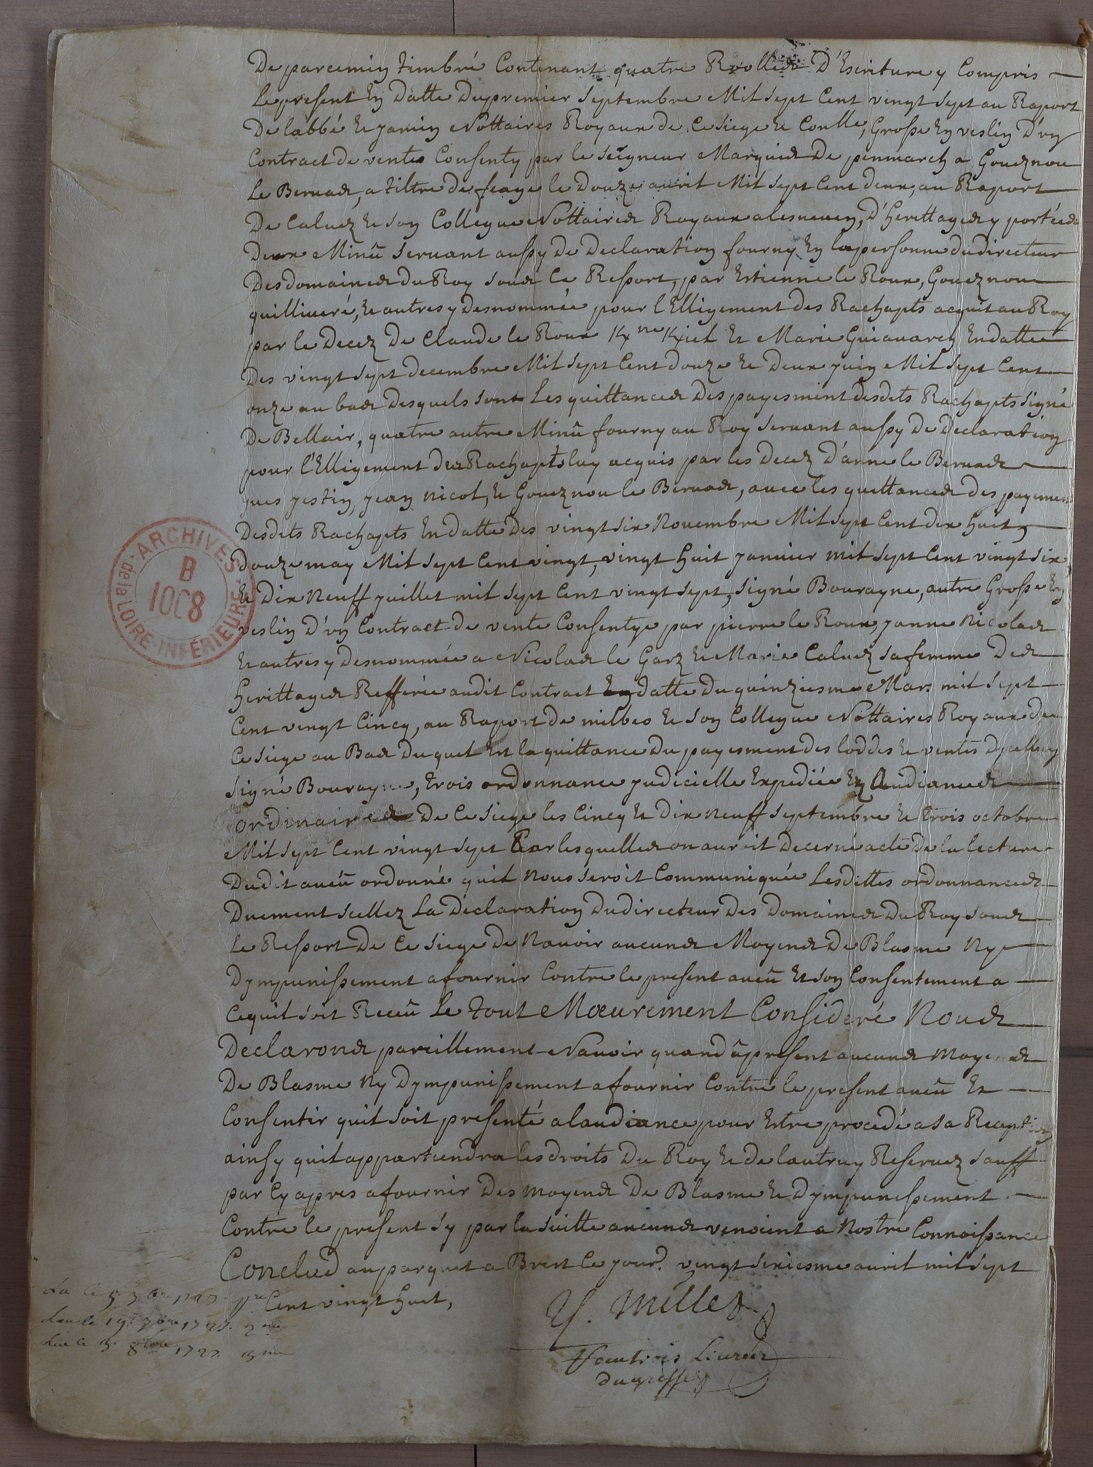 De parcemin timbré Contenant quatre Rolles D'Escriture y Compris
Le present En Datte Du premier Septembre Mil Sept Cent vingt Sept au Raport
De labbé Et Jamin Nottaires Royaux de Ce Siege Et Conlle, Grosse En veslin D'un
Contract de vente Consenty par le Seigneur Marquis De penmarch a Gouesnou
Le Beruas, a tiltre de feage le Douze auril Mil Sept Cent deux, au Raport
De Caluez Et Son Collegue Nottaires Royaux a lesneuen, D'Herittages y portées
Deux Minû Seruant aussy De Declaration fourny En la personne du directeur
Des domaines du Roy Sous Ce Ressort, par Estienne le Roux, Gouesnou
quilliueré, Et autres y Desnommée pour l'Elligement des Rachapts acquit au Roy
par le Decez De Claude le Roux Et Marie Guiauarch En datte
Des vingt Sept decembre Mil Sept Cent douze Et Deux juin Mil Sept Cent
onze au bas Desquels Sont Les quittances Des payesment desdits Rachapts Signé
De Bellair, quatre autre Minû fourny au Roy Seruant aussy De Declaration
pour l'Elligement Des Rachapts luy acquis par les Decez D'anne le Beruas
yues jestin, jean nicol, Et Gouesnou le Beruas, auec les quittances des payemen
Desdits Rachapts En datte Des vingt Six Nouembre Mil Sept Cent Dix Huit,
Douze may Mil Sept Cent vingt, vingt Huit januier mil Sept Cent vingt Six,
Et Dix Neuff juillet mil Sept Cent vingt Sept, Signé Bourayne, autre Grosse En
veslin D'un Contract de vente Consentye par pierre le Roux janne Nicolas
Et autres y Desnommée a Nicolas le Garz Et Marie Caluez Sa femme Des
Herittages Refferée audit Contract En datte Du quinziesme Mars mil Sept
Cent vingt Cincq, au Raport De milbeo Et Son Collegue Nottaires Royaux de
Ce Siege au Bas Duquel Est la quittance Du payesment des loddes Et ventes
Signé Bourayne, trois ordonnance judicielle Expediée En Audiances
ordinaires De Ce Siege les Cincq Et Dix neuff Septembre Et trois octobre
Mil Sept Cent vingt Sept Par lesquelles on auroit Decerné acte De la lecture
Dudit aueû ordonné quil nous Seroit Communiquée Lesdittes ordonnances
Duement Scellez La Declaration Du directeur Des Domaines Du Roy Sous
Le Ressort De Ce Siege De Nauoir aucuns Moyens De Blasme Ny
Dympunissement a fournir Contre le present aueû Et Son Consentement a
Cequil Soit Receû Le tout Moeurement Consideré Nous
Declarons pareillement Nauoir quand a present aucuns Moyens
De Blasme Ny Dympunissement a fournir Contre le present aueû Et
Consentir quil Soit presenté a laudiance pour Estre procedé a Sa Reception
ainsy quil appartiendra les droits Du Roy Et de lautruy Reseruez Sauff
par Cy apres a fournir Des moyens De Blasme Et Dympunissement
Contre le present Sy par la Suitte aucuns venoient a Nostre Connoissance
Conclud au parquet a Brest Ce jour. vingt Sixiesme auril mil Sept
Cent vingt Huit,
Y. Milles
du greffe
Lu le 5 7bre 1727
Leu le 19e 7bre 1727. 2me
Lue le 3. 8bre 1727. 3me
ARCHIVES
B
1008
de la LOIRE-INFÉRIEURE